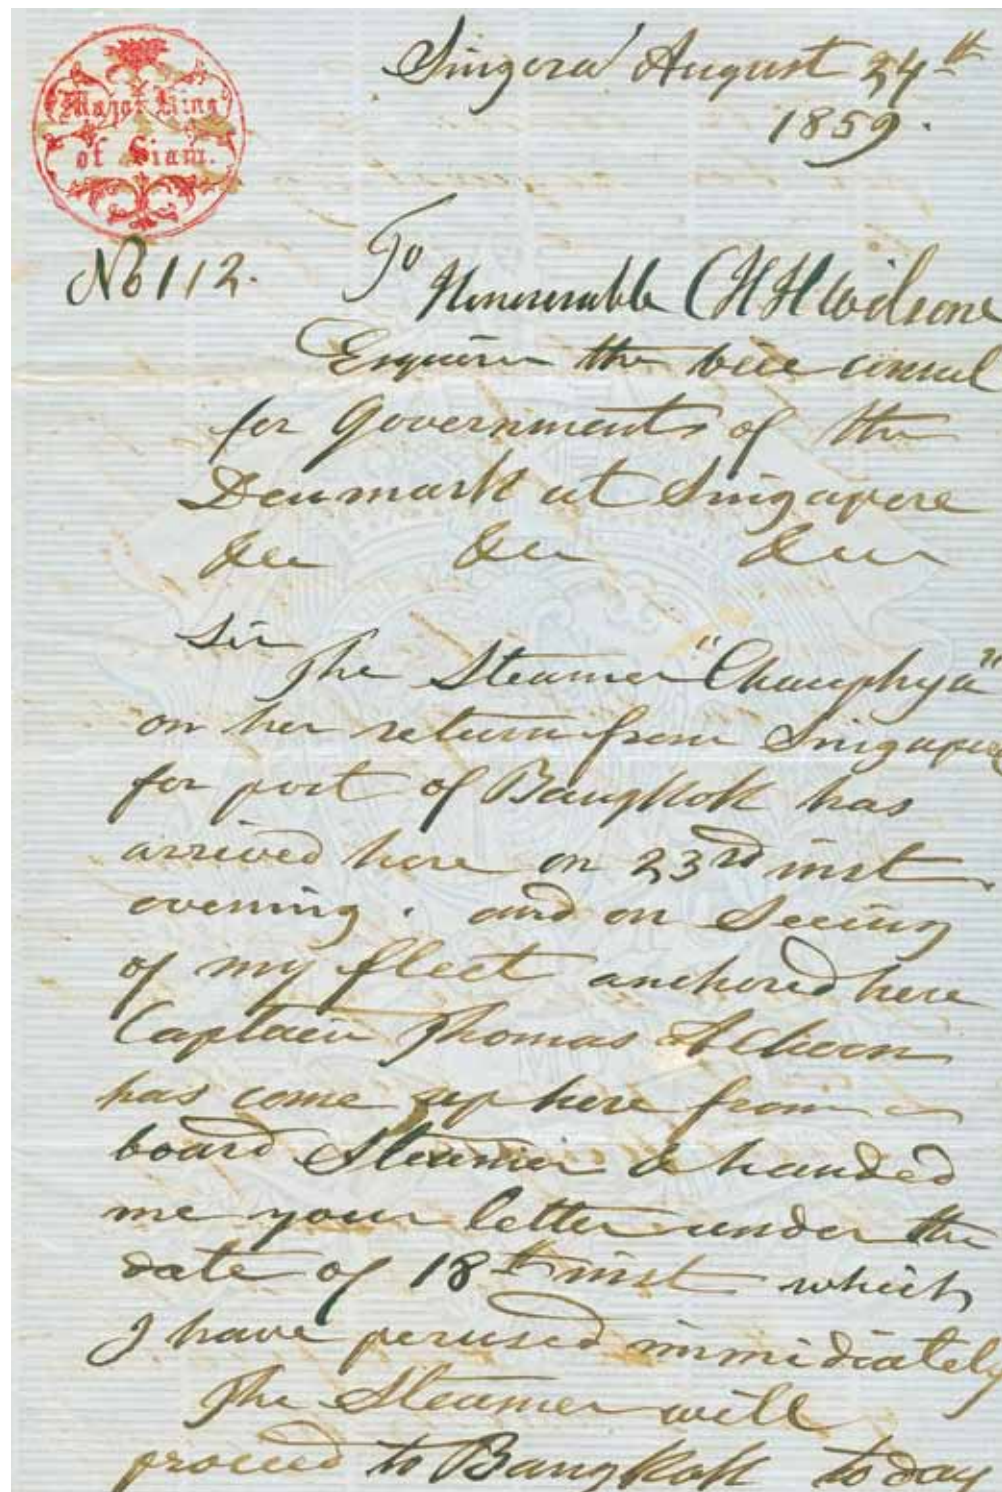 Major King
of Siam.
Singora August 24th
1859.
No 112.
To
Honourable C H H Wilsone
Esquire the vice consul
for Governments of the
Denmark at Singapore
&c &c &c
Sir
The Steamer "Chauphya"
on her return from Singapore
for port of Bangkok has
arrived here on 23rd inst.
evening. and on Seeing
of my fleet anchored here
Captain Thomas
has come up here from
board Steamer & handed
me your letter under the
date of 18th inst which
I have perused immidiately
The Steamer will
proceed to Bangkok to day